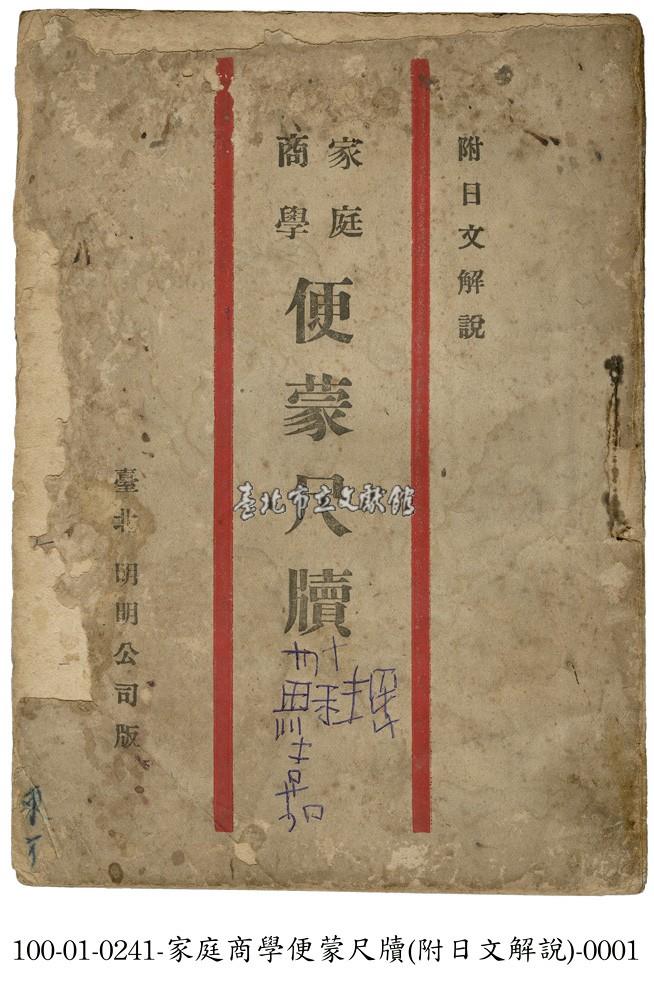 附日文解說
家庭
商學
便蒙尺牘
臺北 明明公司版
臺北市立文獻館
100-01-0241-家庭商學便蒙尺牘(附日文解說)-0001